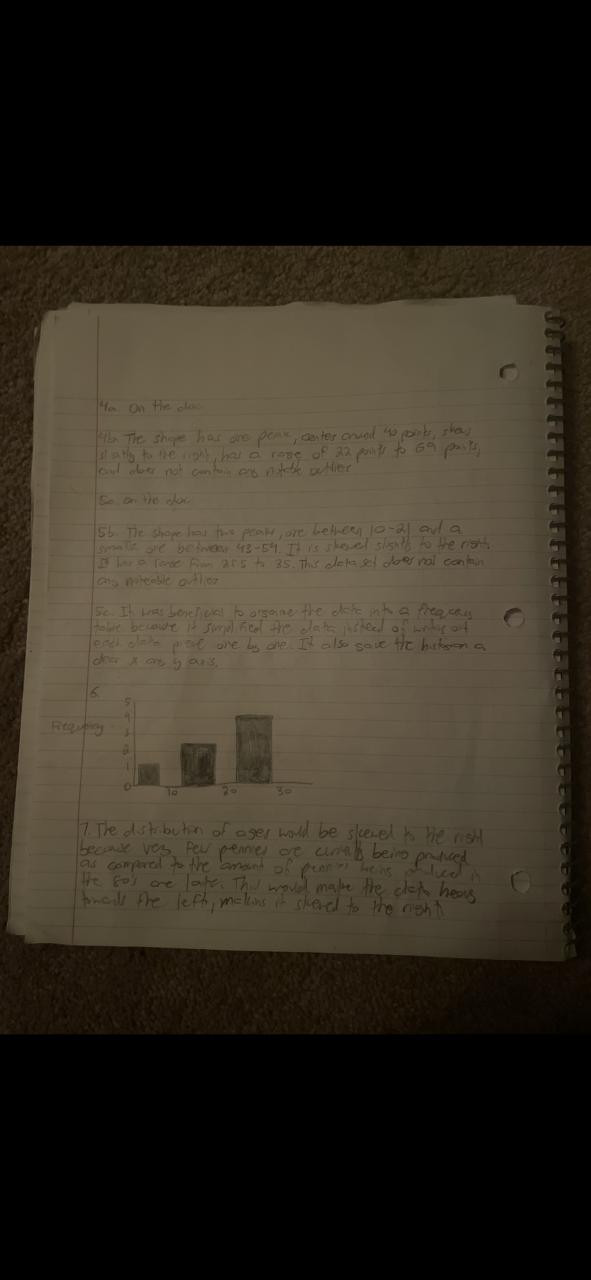 4a. On the doc
4b. The shape has one peak, center around 40 points, skews
slatly to the right, has a range of 22 points to 69 points,
and does not contain any notable outliers
5a. on the doc
5b. The shape has two peaks, one between 10-21 and a
smaller one between 43-54. It is skewed slightly to the right.
It has a range from to 35. This data set does not contain
any noteable outlier
5c. It was beneficial to organize the data into a frequency
table because it simplified the data instead of writing out
each data piece one by one. It also gave the histogram a
clear x and y axis.
6.
5
4
Frequency 3
2
1
0
10 20 30
7. The distribution of ages would be skewed to the right
because very few pennies are currently being produced
as compared to the amount of pennies being produced in
the 80's are late. This would make the data heavy
towards the left, making it skewed to the right